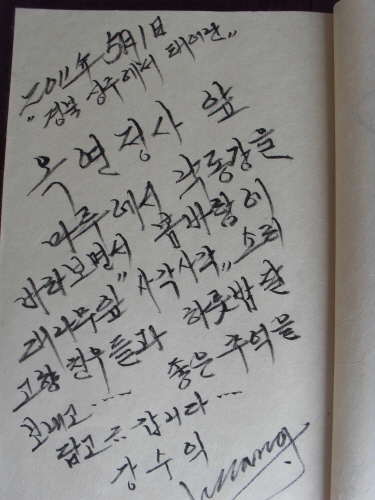 2011年 5月1日
"경북 상주에서 태어난"
옥연정사 앞
마루에서 낙동강을
바라보면서 봄바람에
대나무잎 "사각사각" 소리
고향 친우들과 하룻밤을
보내고.... 좋은 추억을
담고 갑니다...
강수익